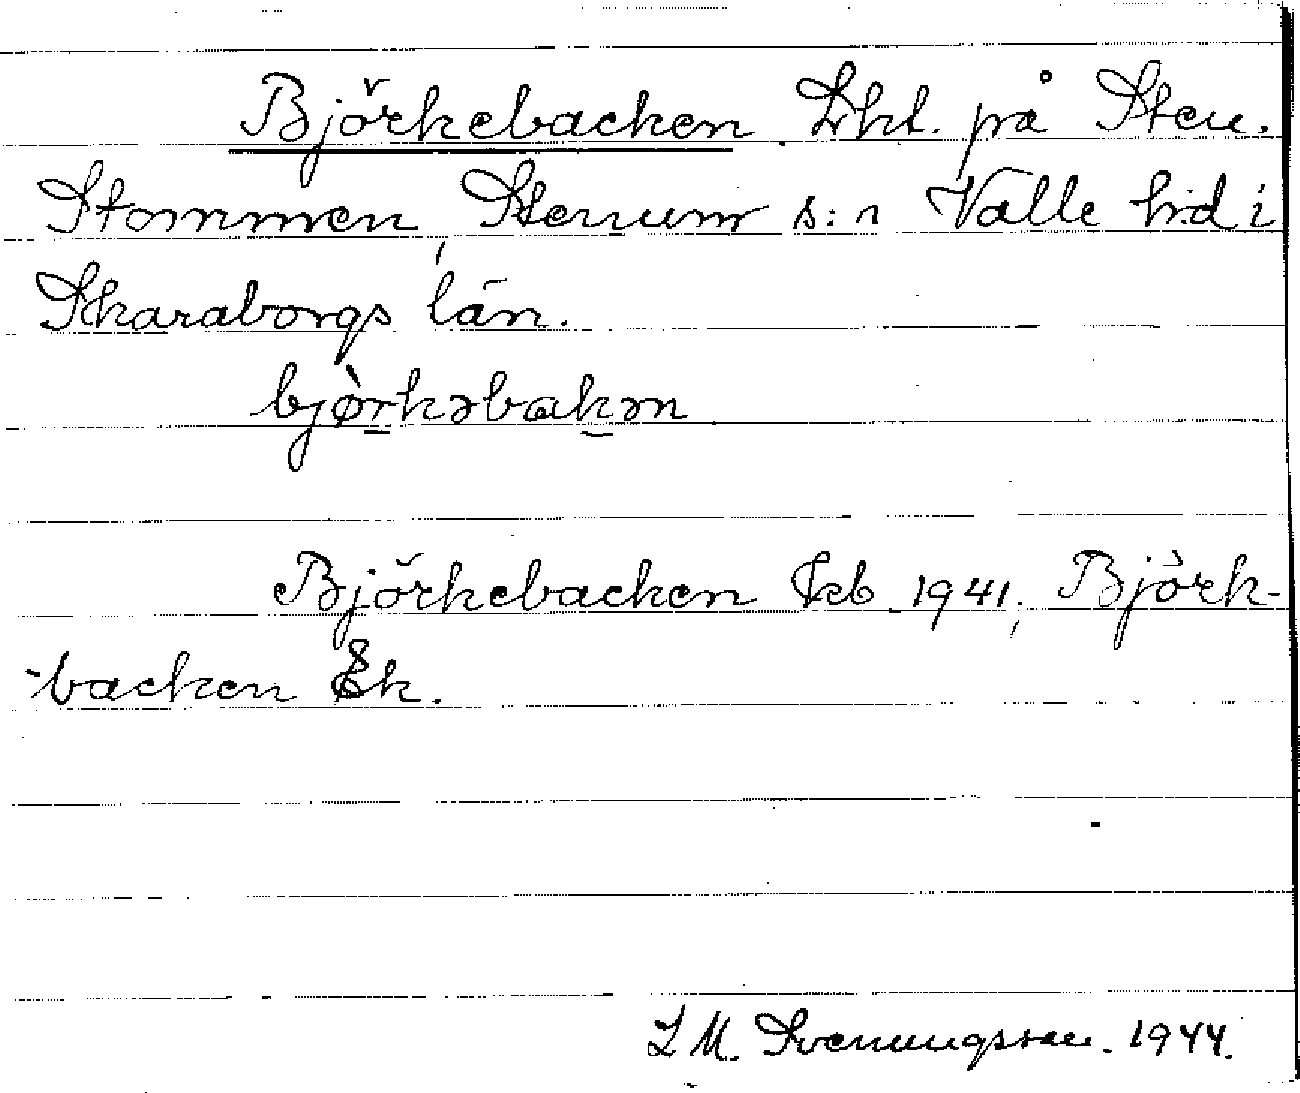 Björkebacken Lht. på Sten.
Stommen, Stenum s:n Valle h:d i
Skaraborgs län.
bjørkəbakən
Björkebacken Jeb 1941; Björk-
-backen Ek.
L M. Svenungsson. 1944.